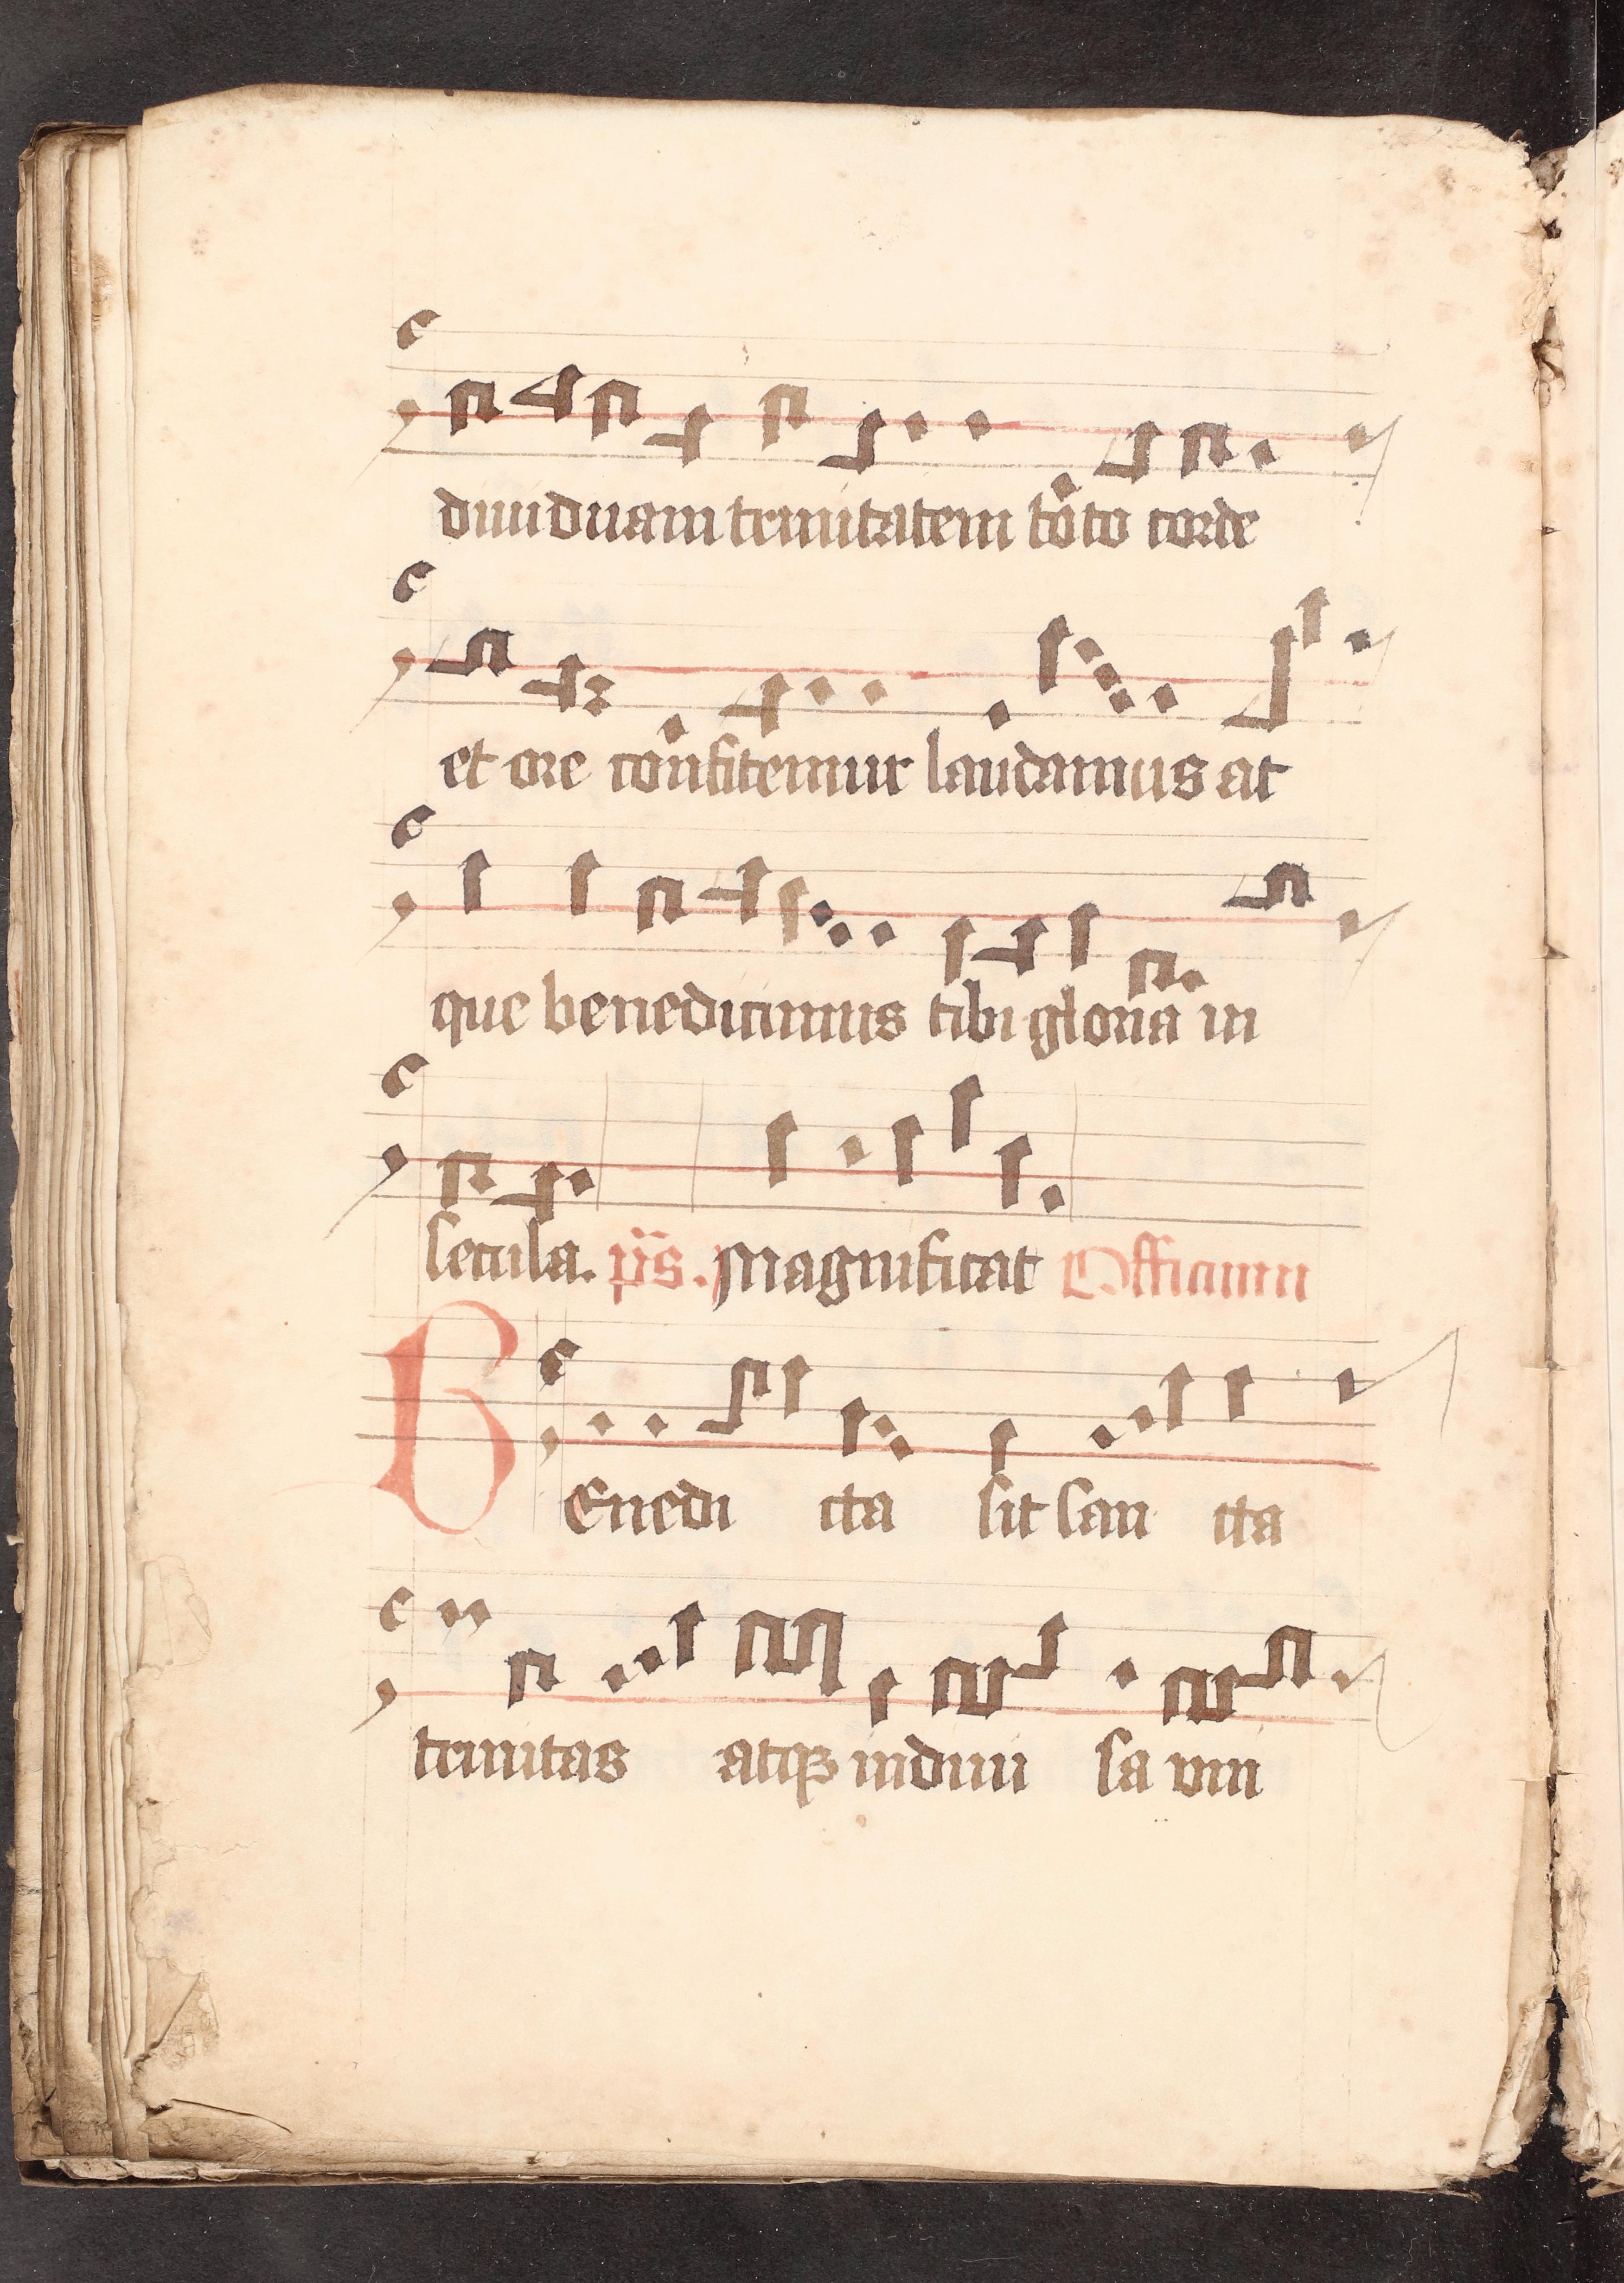 diuiduam trinitatem toto corde
et ore confitemur laudamus at
que benedicimus tibi gloria in
secula. ps. Magnificat Officium
BEnedi cta sit san cta
trinitas atqꝫ indiui sa vni